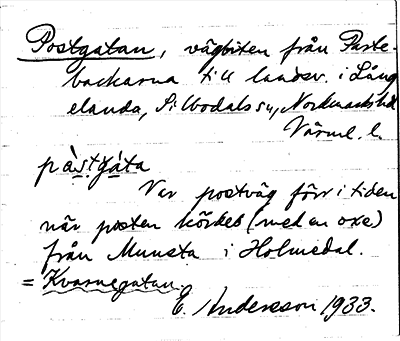 Postgatan, vägbiten från Parte-
backarna till landsv. i Lång
elanda, Silbodals sn, Nordmarks hd
Värml. l.
pàstgáta
Var postväg förr i tiden
när posten kördes (med en oxe)
från Munsta i Holmedal.
= Kvarnegatan.
E. Andersson 1933.